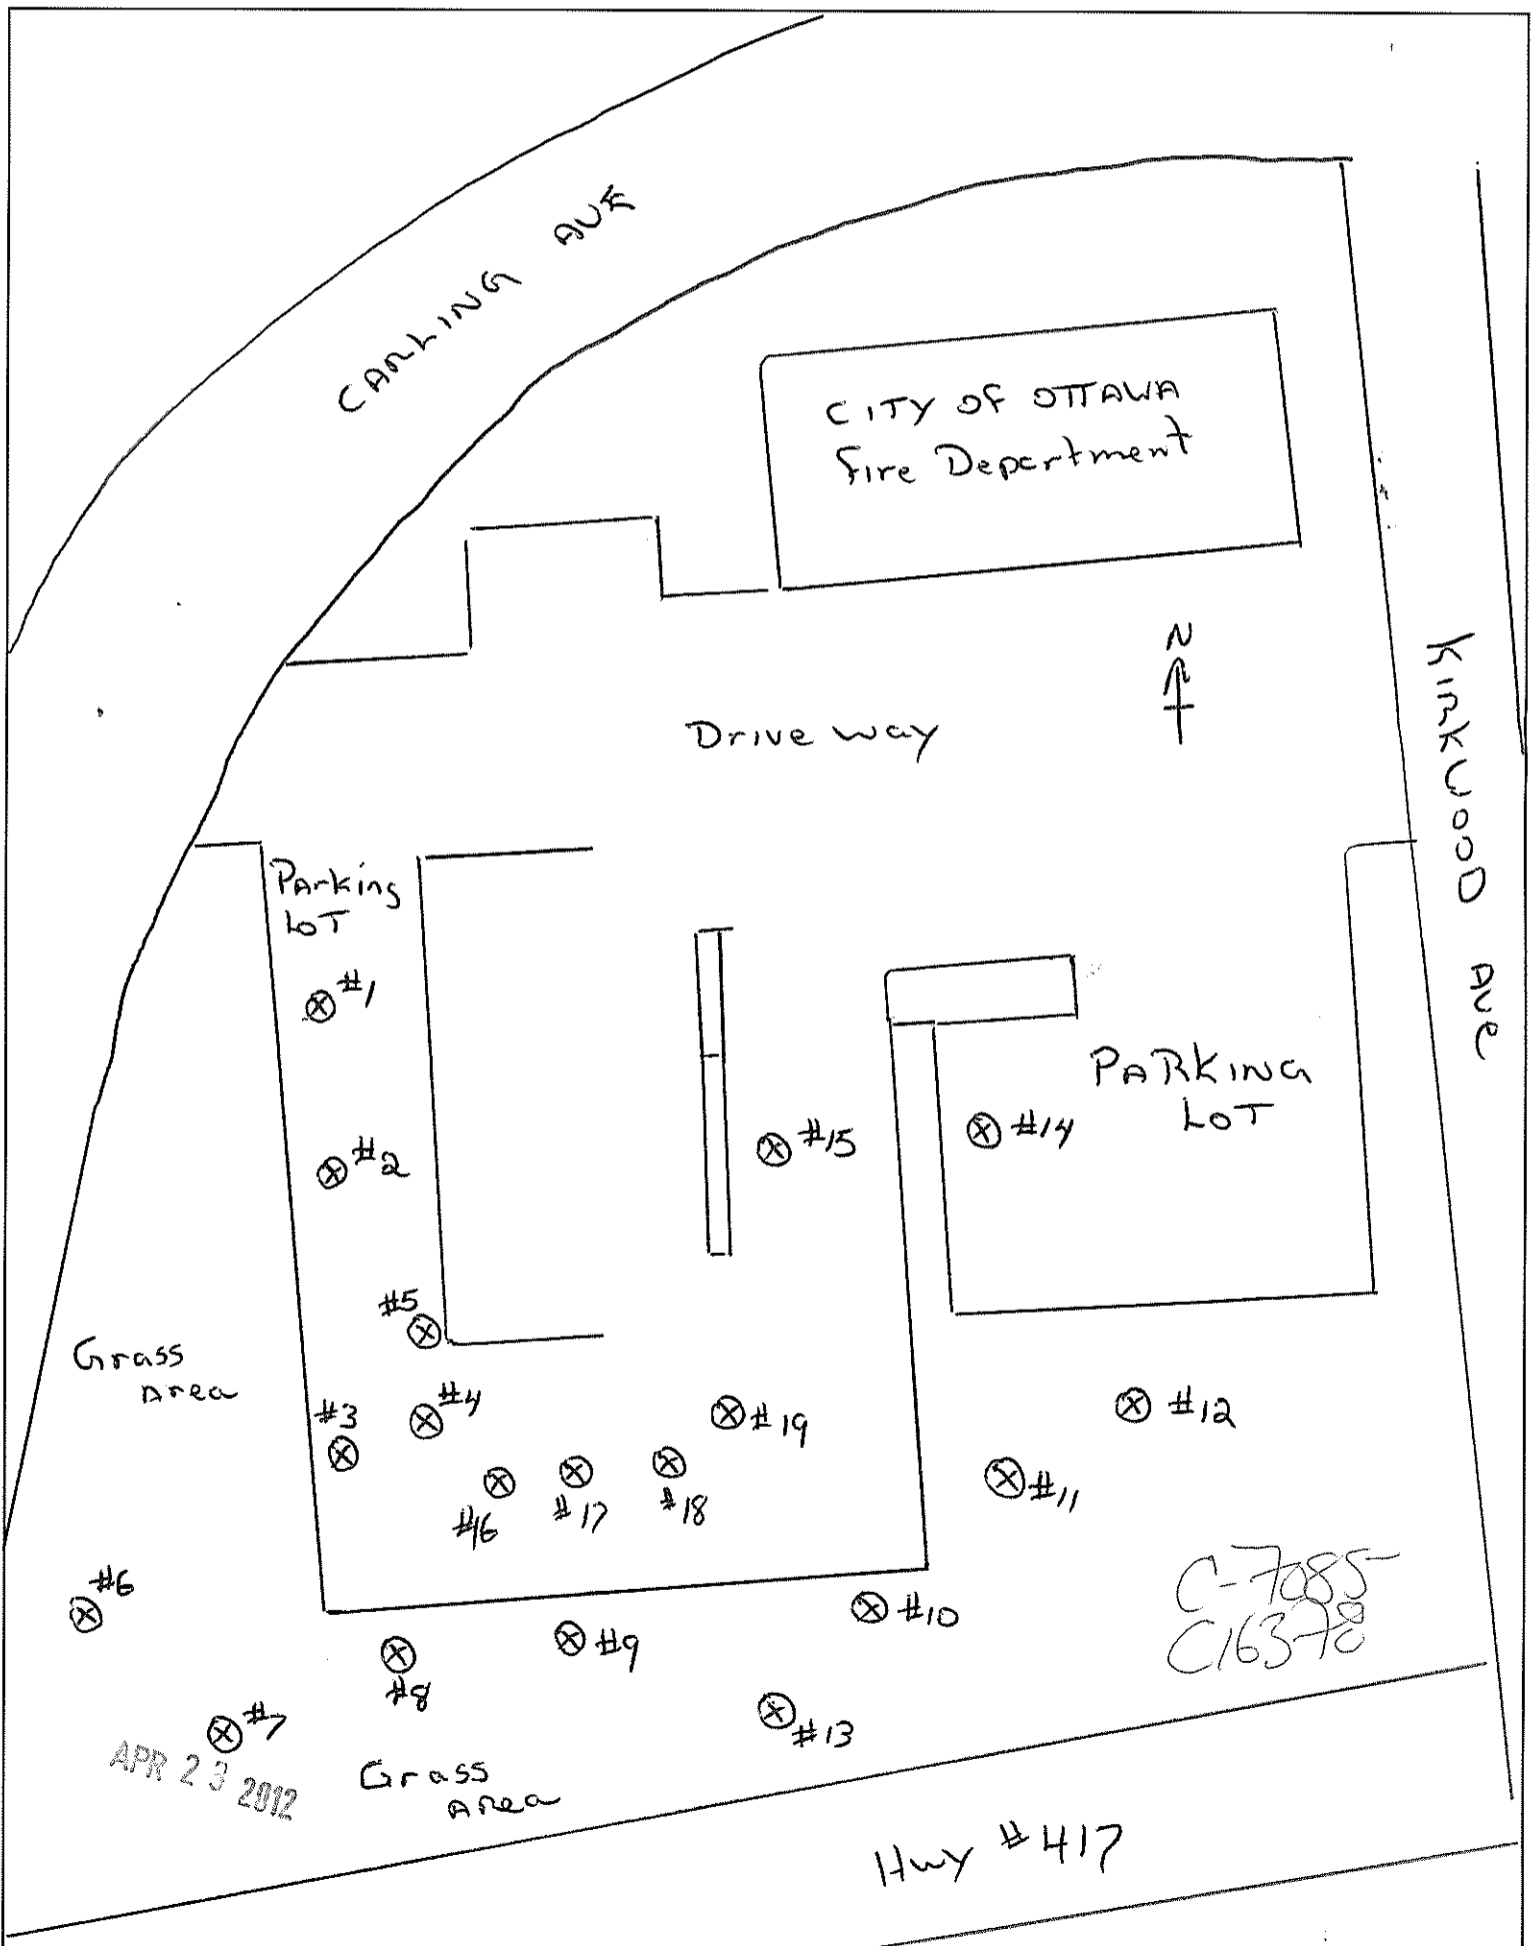 CARLING AVE
CITY OF OTTAWA
Fire Department
N
Drive way
KIRKWOOD AVE
Parking
LOT
#1
PARKING
LOT
#14
#15
#2
#5
Grass
Area
#3
#4
#19
#12
#16
#17
#18
#11
C-7085
C16378
#6
#10
#9
#8
#7
#13
APR 23 2012
Grass
Area
Hwy #417